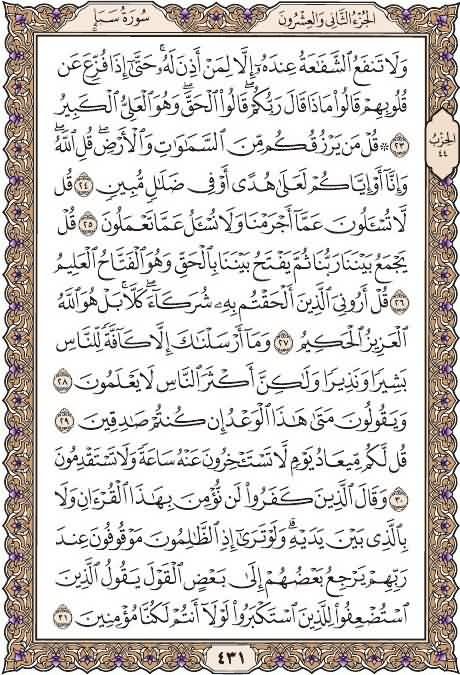 سُورَةُ سَبَإٍ الجُزْءُ الثَّانِي وَالعِشْرُونَ
وَلَا تَنفَعُ ٱلشَّفَٰعَةُ عِندَهُۥٓ إِلَّا لِمَنْ أَذِنَ لَهُۥۚ حَتَّىٰٓ إِذَا فُزِّعَ عَن
قُلُوبِهِمْ قَالُوا۟ مَاذَا قَالَ رَبُّكُمْۖ قَالُوا۟ ٱلْحَقَّۖ وَهُوَ ٱلْعَلِىُّ ٱلْكَبِيرُ
٢٣ ۞ قُلْ مَن يَرْزُقُكُم مِّنَ ٱلسَّمَٰوَٰتِ وَٱلْأَرْضِۖ قُلِ ٱللَّهُۖ
وَإِنَّآ أَوْ إِيَّاكُمْ لَعَلَىٰ هُدًى أَوْ فِى ضَلَٰلٍ مُّبِينٍ ٢٤ قُل
لَّا تُسْـَٔلُونَ عَمَّآ أَجْرَمْنَا وَلَا نُسْـَٔلُ عَمَّا تَعْمَلُونَ ٢٥ قُلْ
يَجْمَعُ بَيْنَنَا رَبُّنَا ثُمَّ يَفْتَحُ بَيْنَنَا بِٱلْحَقِّ وَهُوَ ٱلْفَتَّاحُ ٱلْعَلِيمُ
٢٦ قُلْ أَرُونِىَ ٱلَّذِينَ أَلْحَقْتُم بِهِۦ شُرَكَآءَۖ كَلَّاۚ بَلْ هُوَ ٱللَّهُ
ٱلْعَزِيزُ ٱلْحَكِيمُ ٢٧ وَمَآ أَرْسَلْنَٰكَ إِلَّا كَآفَّةً لِّلنَّاسِ
بَشِيرًا وَنَذِيرًا وَلَٰكِنَّ أَكْثَرَ ٱلنَّاسِ لَا يَعْلَمُونَ ٢٨
وَيَقُولُونَ مَتَىٰ هَٰذَا ٱلْوَعْدُ إِن كُنتُمْ صَٰدِقِينَ ٢٩
قُل لَّكُم مِّيعَادُ يَوْمٍ لَّا تَسْتَـْٔخِرُونَ عَنْهُ سَاعَةً وَلَا تَسْتَقْدِمُونَ
٣٠ وَقَالَ ٱلَّذِينَ كَفَرُوا۟ لَن نُّؤْمِنَ بِهَٰذَا ٱلْقُرْءَانِ وَلَا
بِٱلَّذِى بَيْنَ يَدَيْهِۗ وَلَوْ تَرَىٰٓ إِذِ ٱلظَّٰلِمُونَ مَوْقُوفُونَ عِندَ
رَبِّهِمْ يَرْجِعُ بَعْضُهُمْ إِلَىٰ بَعْضٍ ٱلْقَوْلَ يَقُولُ ٱلَّذِينَ
ٱسْتُضْعِفُوا۟ لِلَّذِينَ ٱسْتَكْبَرُوا۟ لَوْلَآ أَنتُمْ لَكُنَّا مُؤْمِنِينَ ٣١
الحِزْبُ
٤٤
٤٣١